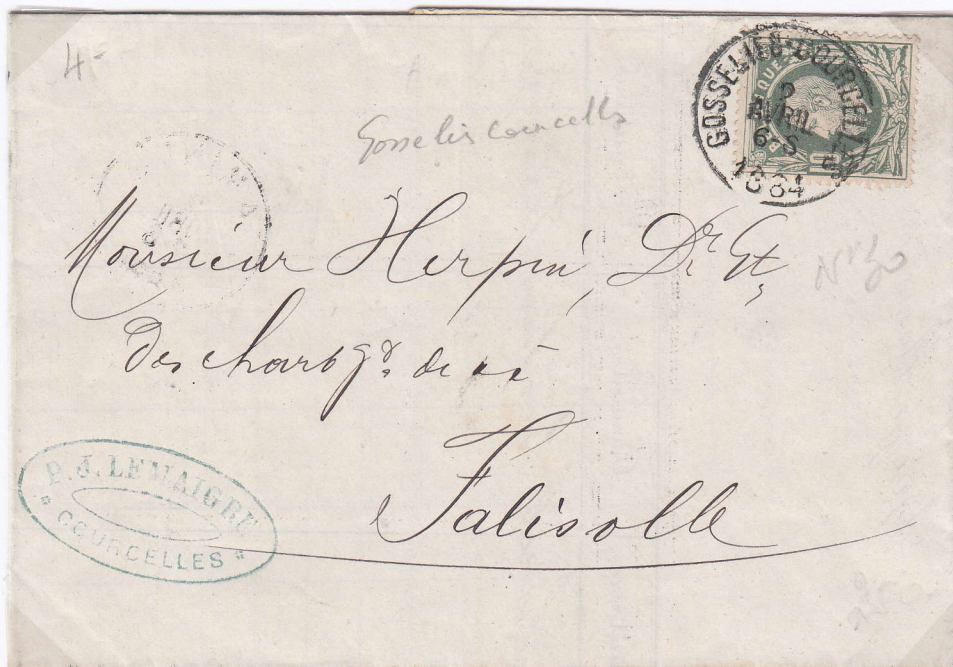 4-
GOSSELIES-COURCELLES
AVRIL
6-S
1884
10
Gosselies courcelles
Monsieur Herpin, Dr Gt,
des charbgs. de et à
Falisolle
P. J. LEMAIGRE
COURCELLES